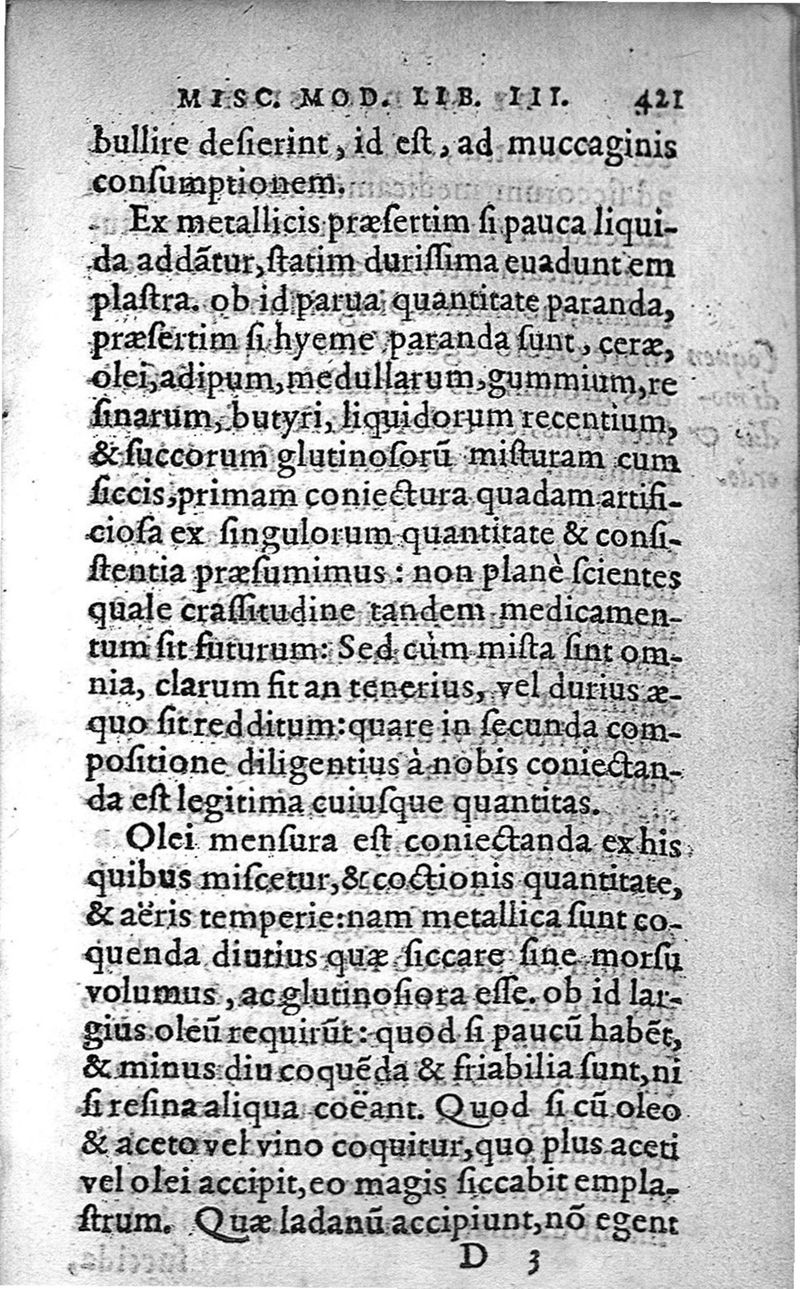 MISC. MOD. LIB. III. 421
bullire deſierint, id eſt, ad muccaginis
conſumptionem.
Ex metallicis præſertim ſi pauca liqui-
da addãtur, ſtatim duriſſima euadunt em
plaſtra. ob id parua quantitate paranda,
præſertim ſi hyeme paranda ſunt, ceræ,
olei, adipum, medullarum, gummium, re
ſinarum, butyri, liquidorum recentium,
& ſuccorum glutinoſorũ miſturam cum
ſiccis, primam coniectura quadam artifi-
cioſa ex ſingulorum quantitate & conſi-
ſtentia præſumimus: non planè ſcientes
quale craſſitudine tandem medicamen-
tum ſit futurum: Sed cùm miſta ſint om-
nia, clarum fit an tenerius, vel durius æ-
quo ſit redditum: quare in ſecunda com-
poſitione diligentius à nobis coniectan-
da eſt legitima cuiuſque quantitas.
Olei menſura eſt coniectanda ex his
quibus miſcetur, & coctionis quantitate,
& aëris temperie: nam metallica ſunt co-
quenda diutius quæ ſiccare ſine morſu
volumus, ac glutinoſiora eſſe. ob id lar-
gius oleũ requirũt: quod ſi paucũ habẽt,
& minus diu coquẽda & friabilia ſunt, ni
ſi reſina aliqua coëant. Quod ſi cũ oleo
& aceto vel vino coquitur, quo plus aceti
vel olei accipit, eo magis ſiccabit empla-
ſtrum. Quæ ladanũ accipiunt, nõ egent
D 3